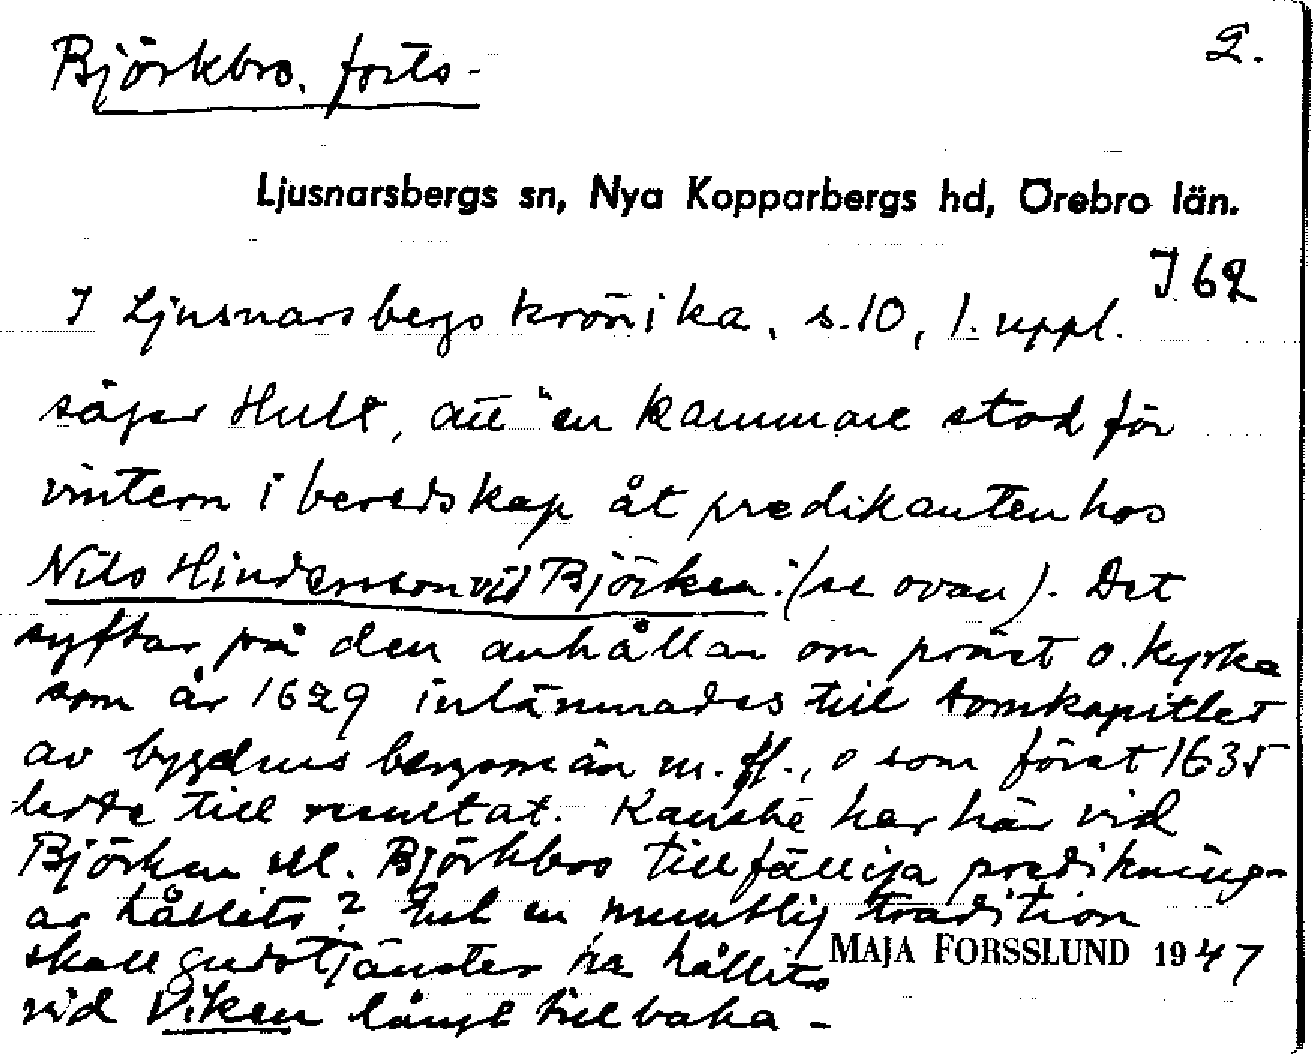 Björkbro. forts- 2.
Ljusnarsbergs sn, Nya Kopparbergs hd, Örebro län.
I 62
I Ljusnarsbergs krönika, s.10, 1. uppl.
säger Hult, att "en kammare stod för
vintern i beredskap åt predikanten hos
Nils Hindersson vid Björken." (se ovan). Det
syftar på den anhållan om präst o. kyrka
som år 1629 inlämnades till domkapitlet
av bygdens bergsmän m. fl., o som först 1635
ledde till resultat. Kanske har här vid
Björken ell. Björkbro tillfälliga predikning-
ar hållits? Enl en muntlig tradition
skall gudstjänster ha hållits
MAJA FORSSLUND 1947
vid Viken långt tillbaka -